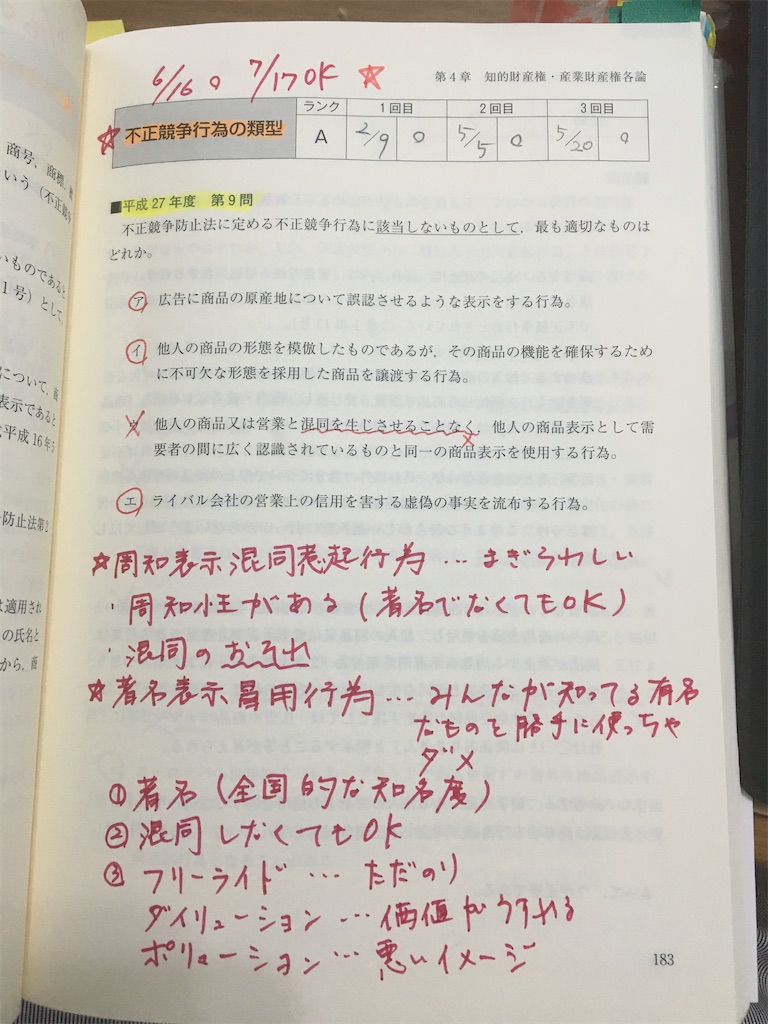 6/16 o 7/17 OK ☆
第4章 知的財産権・産業財産権各論
☆ 不正競争行為の類型
ランク 1回目 2回目 3回目
A 2/9 o 5/5 o 5/20 o
■平成27年度 第9問
不正競争防止法に定める不正競争行為に該当しないものとして，最も適切なものは
どれか。
ア 広告に商品の原産地について誤認させるような表示をする行為。
イ 他人の商品の形態を模倣したものであるが，その商品の機能を確保するため
に不可欠な形態を採用した商品を譲渡する行為。
ウ 他人の商品又は営業と混同を生じさせることなく，他人の商品表示として需
要者の間に広く認識されているものと同一の商品表示を使用する行為。
エ ライバル会社の営業上の信用を害する虚偽の事実を流布する行為。
☆周知表示混同惹起行為 … まぎらわしい
・周知性がある（著名でなくてもOK）
・混同のおそれ
☆著名表示冒用行為 … みんなが知ってる有名
だものを勝手に使っちゃ
ダメ
① 著名（全国的な知名度）
② 混同しなくてもOK
③ フリーライド … ただのり
ダイリューション … 価値がうすれる
ポリューション … 悪いイメージ
183
商号、商標、
いう（不正競
いものであると
1号）として，
について，商
表示であると
平成16年5
防止法第2
は適用され
の氏名と
から，商